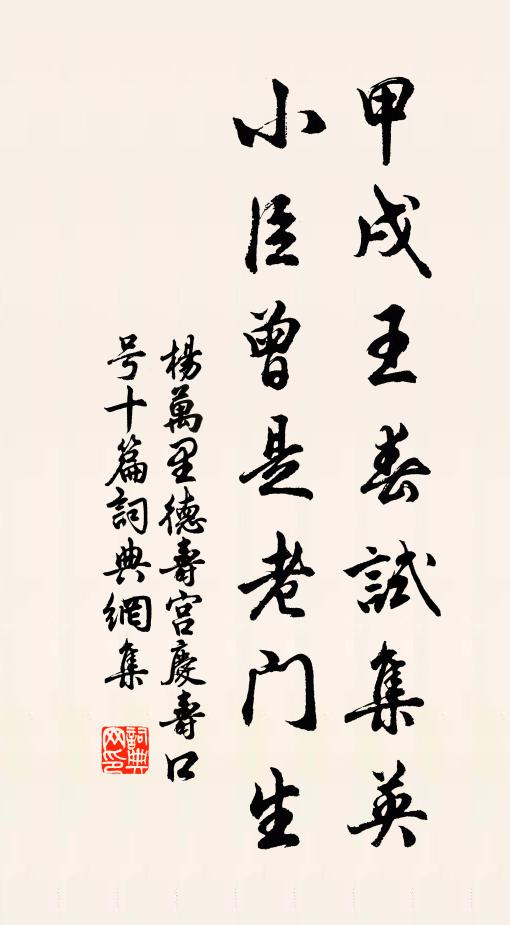 甲戌王春試集英
小臣曾是老門生
楊萬里德壽宮慶壽口
号十篇詞典網集
詞典
网印